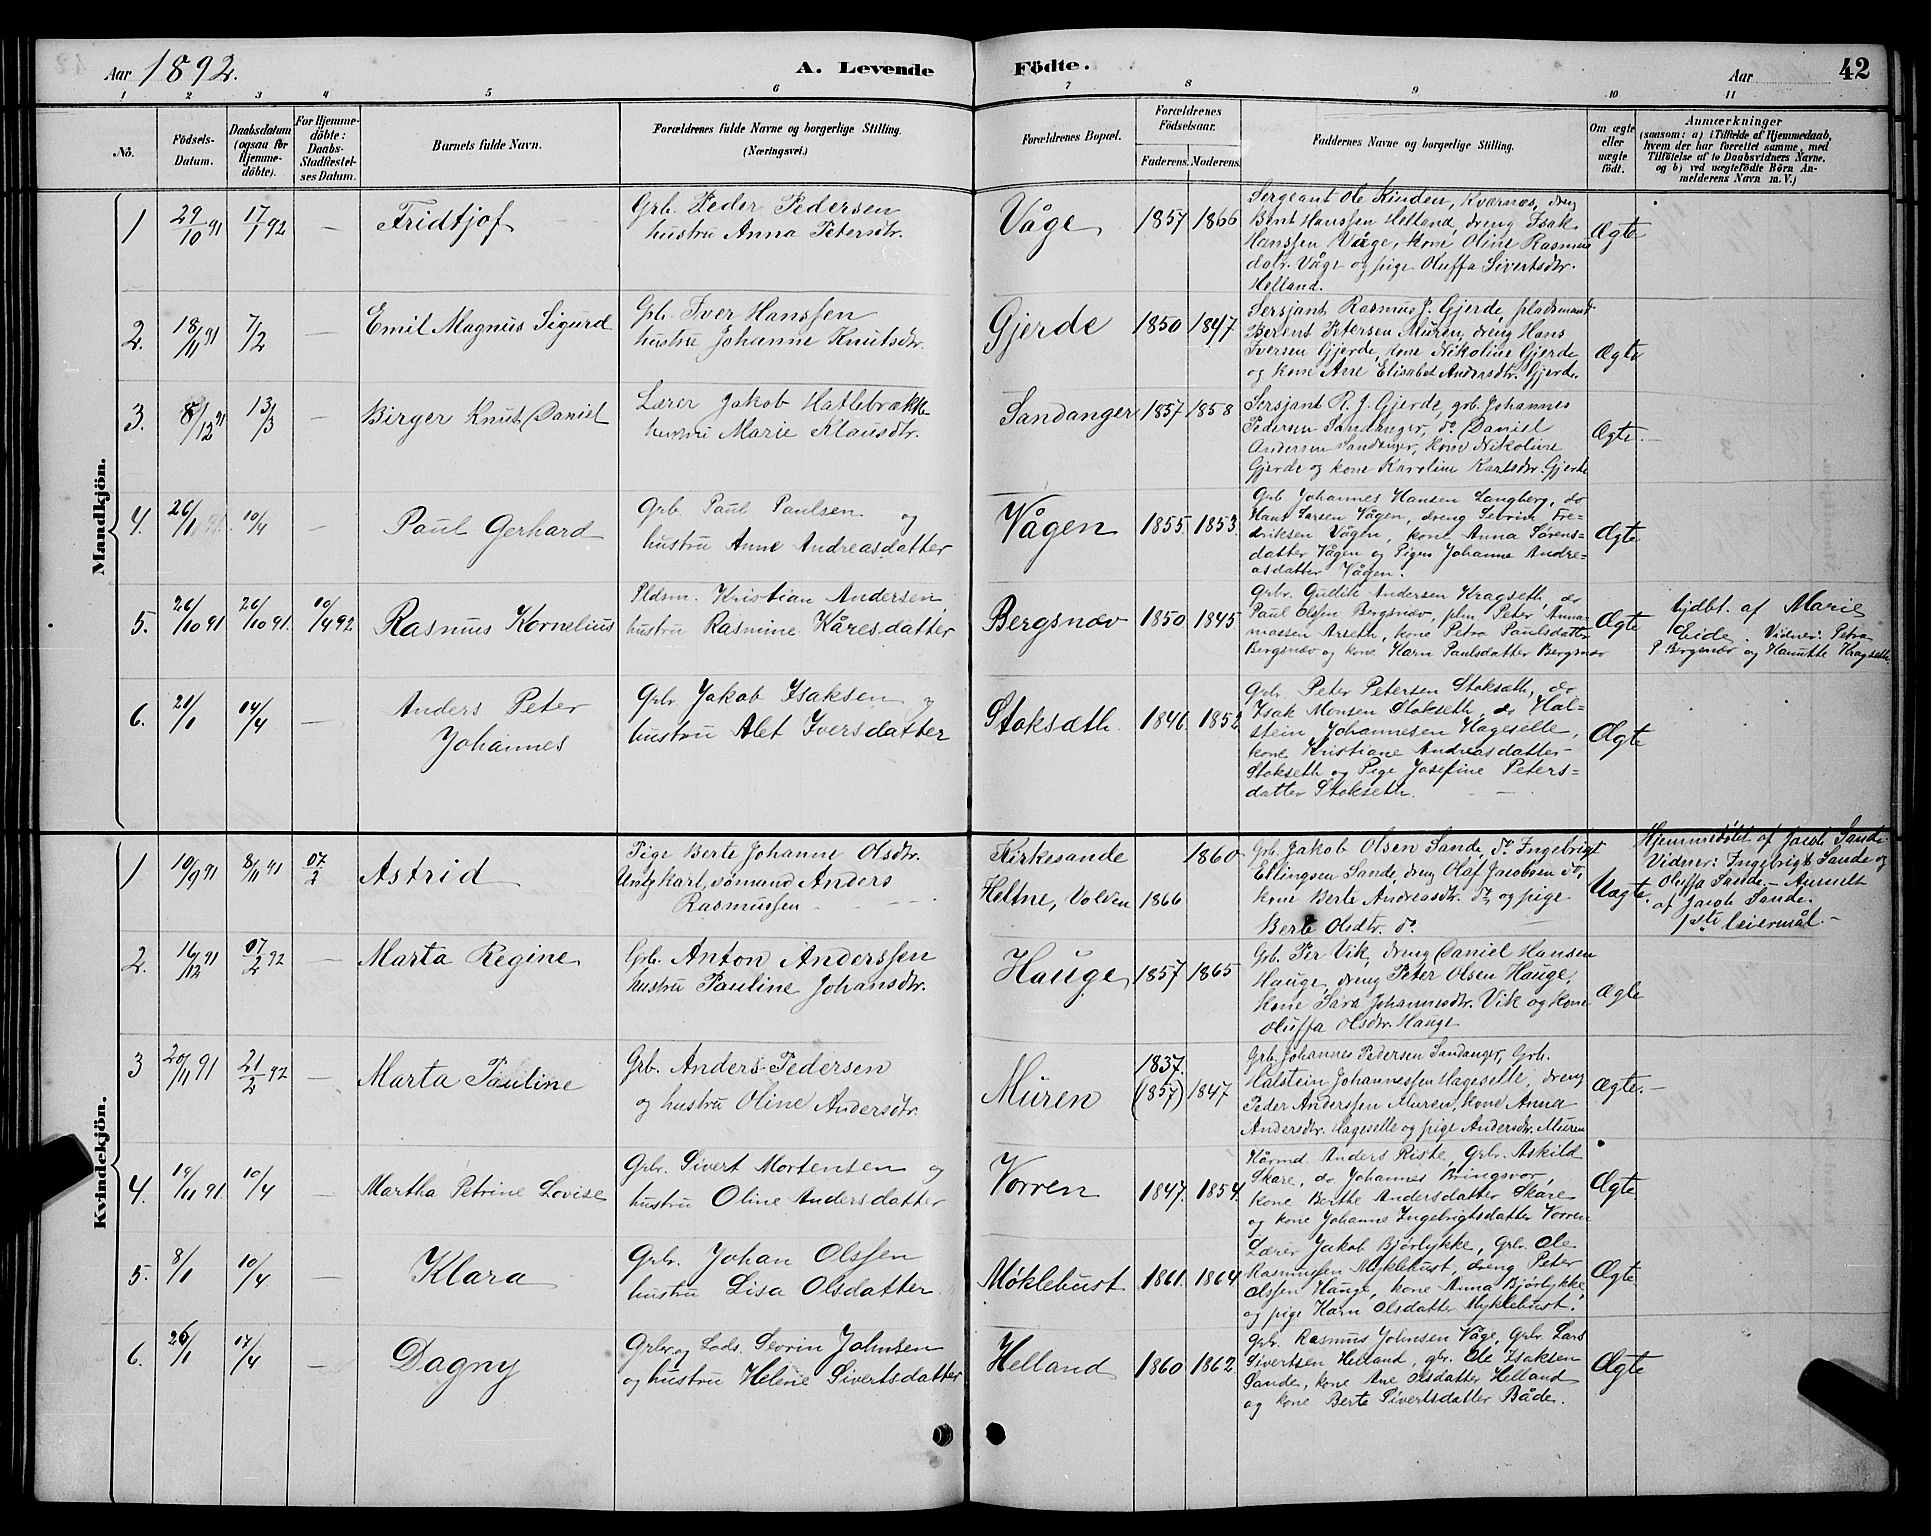 Aar 1892.
A. Levende Födte.
Aar
42
1 2 3 4 5 6 7 8 9 10 11
No.
Födsels-
Datum.
Daabsdatum
(ogsaa for
Hjemme-
döbte).
For Hjemme-
döbte:
Daabs-
Stadfæstel-
ses Datum.
Barnets fulde Navn.
Forældrenes fulde Navne og borgerlige Stilling.
(Næringsvei.)
Forældrenes Bopæl.
Forældrenes
Födselsaar.
Faderens. Moderens.
Faddernes Navne og borgerlige Stilling.
Om ægte
eller
uægte
født.
Anmærkninger
(saasom: a) i Tilfælde af Hjemmedaab,
hvem der har forrettet samme, med
Tilföielse af to Daabsvidners Navne,
og b) ved uægtefödte Börn An-
melderens Navn m. V.)
Mandkjön.
1 29/10 91 17/1 92 — Fridtjof
Grb. Peder Pedersen
hustru Anna Petersdtr.
Våge 1857 1866
Sergeant Ole Kinden, Kvernes, dreng
Bent Hanssen Helland, dreng Isak
Hanssen Våge, kone Oline Rasmus
datr. Våge og pige Oluffa Sivertsdtr.
Helland.
Ægte
2. 18/11 91 7/2 — Emil Magnus Sigurd
Grb. Iver Hanssen
hustru Johanne Knutsdtr.
Gjerde 1850 1847
Sersjant Rasmus J. Gjerde, pladsmand
Berent Petersen Muren, dreng Hans
Iversen Gjerde, kone Nikoline Gjerde
og kone Ane Elisabet Andersdtr. Gjerde.
Ægte
3. 8/12 91 13/3 — Birger Knut Daniel
Lærer Jakob Hatlebrække
hustru Marie Klausdtr.
Sandanger 1857 1858
Sersjant R. J. Gjerde, grb. Johannes
Pedersen Sandanger, do Daniel
Andersen Sandanger, kone Nikoline
Gjerde og kone Karoline Karlsdtr. Gjerde
Ægte.
4. 26/1 10/4 — Paul Gerhard
Grb. Paul Paulsen og
hustru Anne Andreasdatter
Vågen 1855. 1853.
Grb Johannes Hansen Langberg, do
Hans Larsen Vågen, dreng Sevrin Fre-
driksen Vågen, kone Anna Sørens-
datter Vågen og Pigen Johanne Andre-
asdatter Vågen.
Ægte
5. 26/10 91 26/10 91. 10/4 92 Rasmus Kornelius
Pldsm. Kristian Andersen,
hustru Rasmine Kåresdatter
Bergsnæv 1850 1845
Grbr. Gudite Andersen Kragseth, do
Paul Olsen Bergsnæv, plm Peter Anna-
massen Arseth, kone Petra Paulsdatter
Bergsnæv og kone Karn Paulsdatter Bergsnæv
Ægte
hjdbt. af Marie
Eide. Vidner: Petra
P Bergsnæv og Hanutte Kragseth
6. 21/1 14/4 — Anders Peter
Johannes
Grb Jakob Isaksen og
hustru Alet Iversdatter
Stoksæth. 1846 1852
Grb. Peter Petersen Stoksæth, do
Isak Monsen Stokseth, do Hal-
stein Johannesen Hageselle,
kone Kristiane Andreasdatter
Stokseth og Pige Josefine Peters-
datter Stokseth.
Ægte
Kvindekjön.
1 10/9 91 8/11 91 07/2 Astrid
Pige Berte Johanne Olsdtr.
Ungkarl, sømand Anders
Rasmussen
Kirkesande 1860
Heltne, Volden 1866
Grb Jakob Olsen Sande, do Ingebrigt
Ellingsen Sande, dreng Olaf Jacobsen do,
kone Berte Andreasdtr. do og pige
Berte Olsdtr. do.
Uægte.
Hjemmedøbt af Jacob Sande
Vidner: Ingebrigt Sande og
Oluffa Sande. – Anmeldt
af Jacob Sande.
1ste leiermål. –
2. 16/12 91 07/2 92 — Marta Regine
Grb. Anton Anderssen
hustru Pauline Johansdtr.
Hauge 1857 1865
Grb. Per Vik, dreng Daniel Hansen
Hauge, dreng Peter Olsen Hauge,
kone Sara Johannesdtr. Vik og kone
Oluffa Olsdtr. Hauge
Ægte
3 20/11 91 21/2 92 — Marta Pauline
Grb. Anders Pedersen
og hustru Oline Andersdtr.
Muren 1837. (1857) 1847
Grb. Johannes Pedersen Sandanger, Grb.
Halstein Johannessen Hageselle, dreng
Peder Anderssen Muren, kone Anna
Andersdtr. Hageselle og pige Andersdtr. Muren
Ægte.
4. 19/11 91. 10/4 — Martha Petrine Lovise
Grbr. Sivert Mortensen og
hustru Oline Andersdatter
Vorren 1847. 1854.
Kårmd. Anders Riste, Grb. Askild
Skare, do Johannes Bringsvor,
kone Berthe Andersdatter Skare
og kone Johanne Ingebrigtsdatter Vorren
Ægte
5. 8/1 10/4 — Klara
Grb. Johan Olssen
hustru Lisa Olsdatter.
Møklebust 1861. 1864
Lærer Jakob Bjørlykke, grb. Ole
Rasmussen Myklebust, dreng Peter
Olssen Hauge, kone Anna Bjørlykke
og pige Karn Olsdatter Myklebust.
Ægte
6. 26/1 17/4 — Dagny
Grbr. og Lods. Sevrin Johnsen
og hustru Helene Sivertsdatter
Helland 1860 1862.
Grb. Rasmus Johnsen Våge, Grb. Lars
Sivertsen Helland, gbr. Ole Isaksen
Sande, kone Ane Olsdatter Helland
og kone Berte Sivertsdatter Både.
Ægte